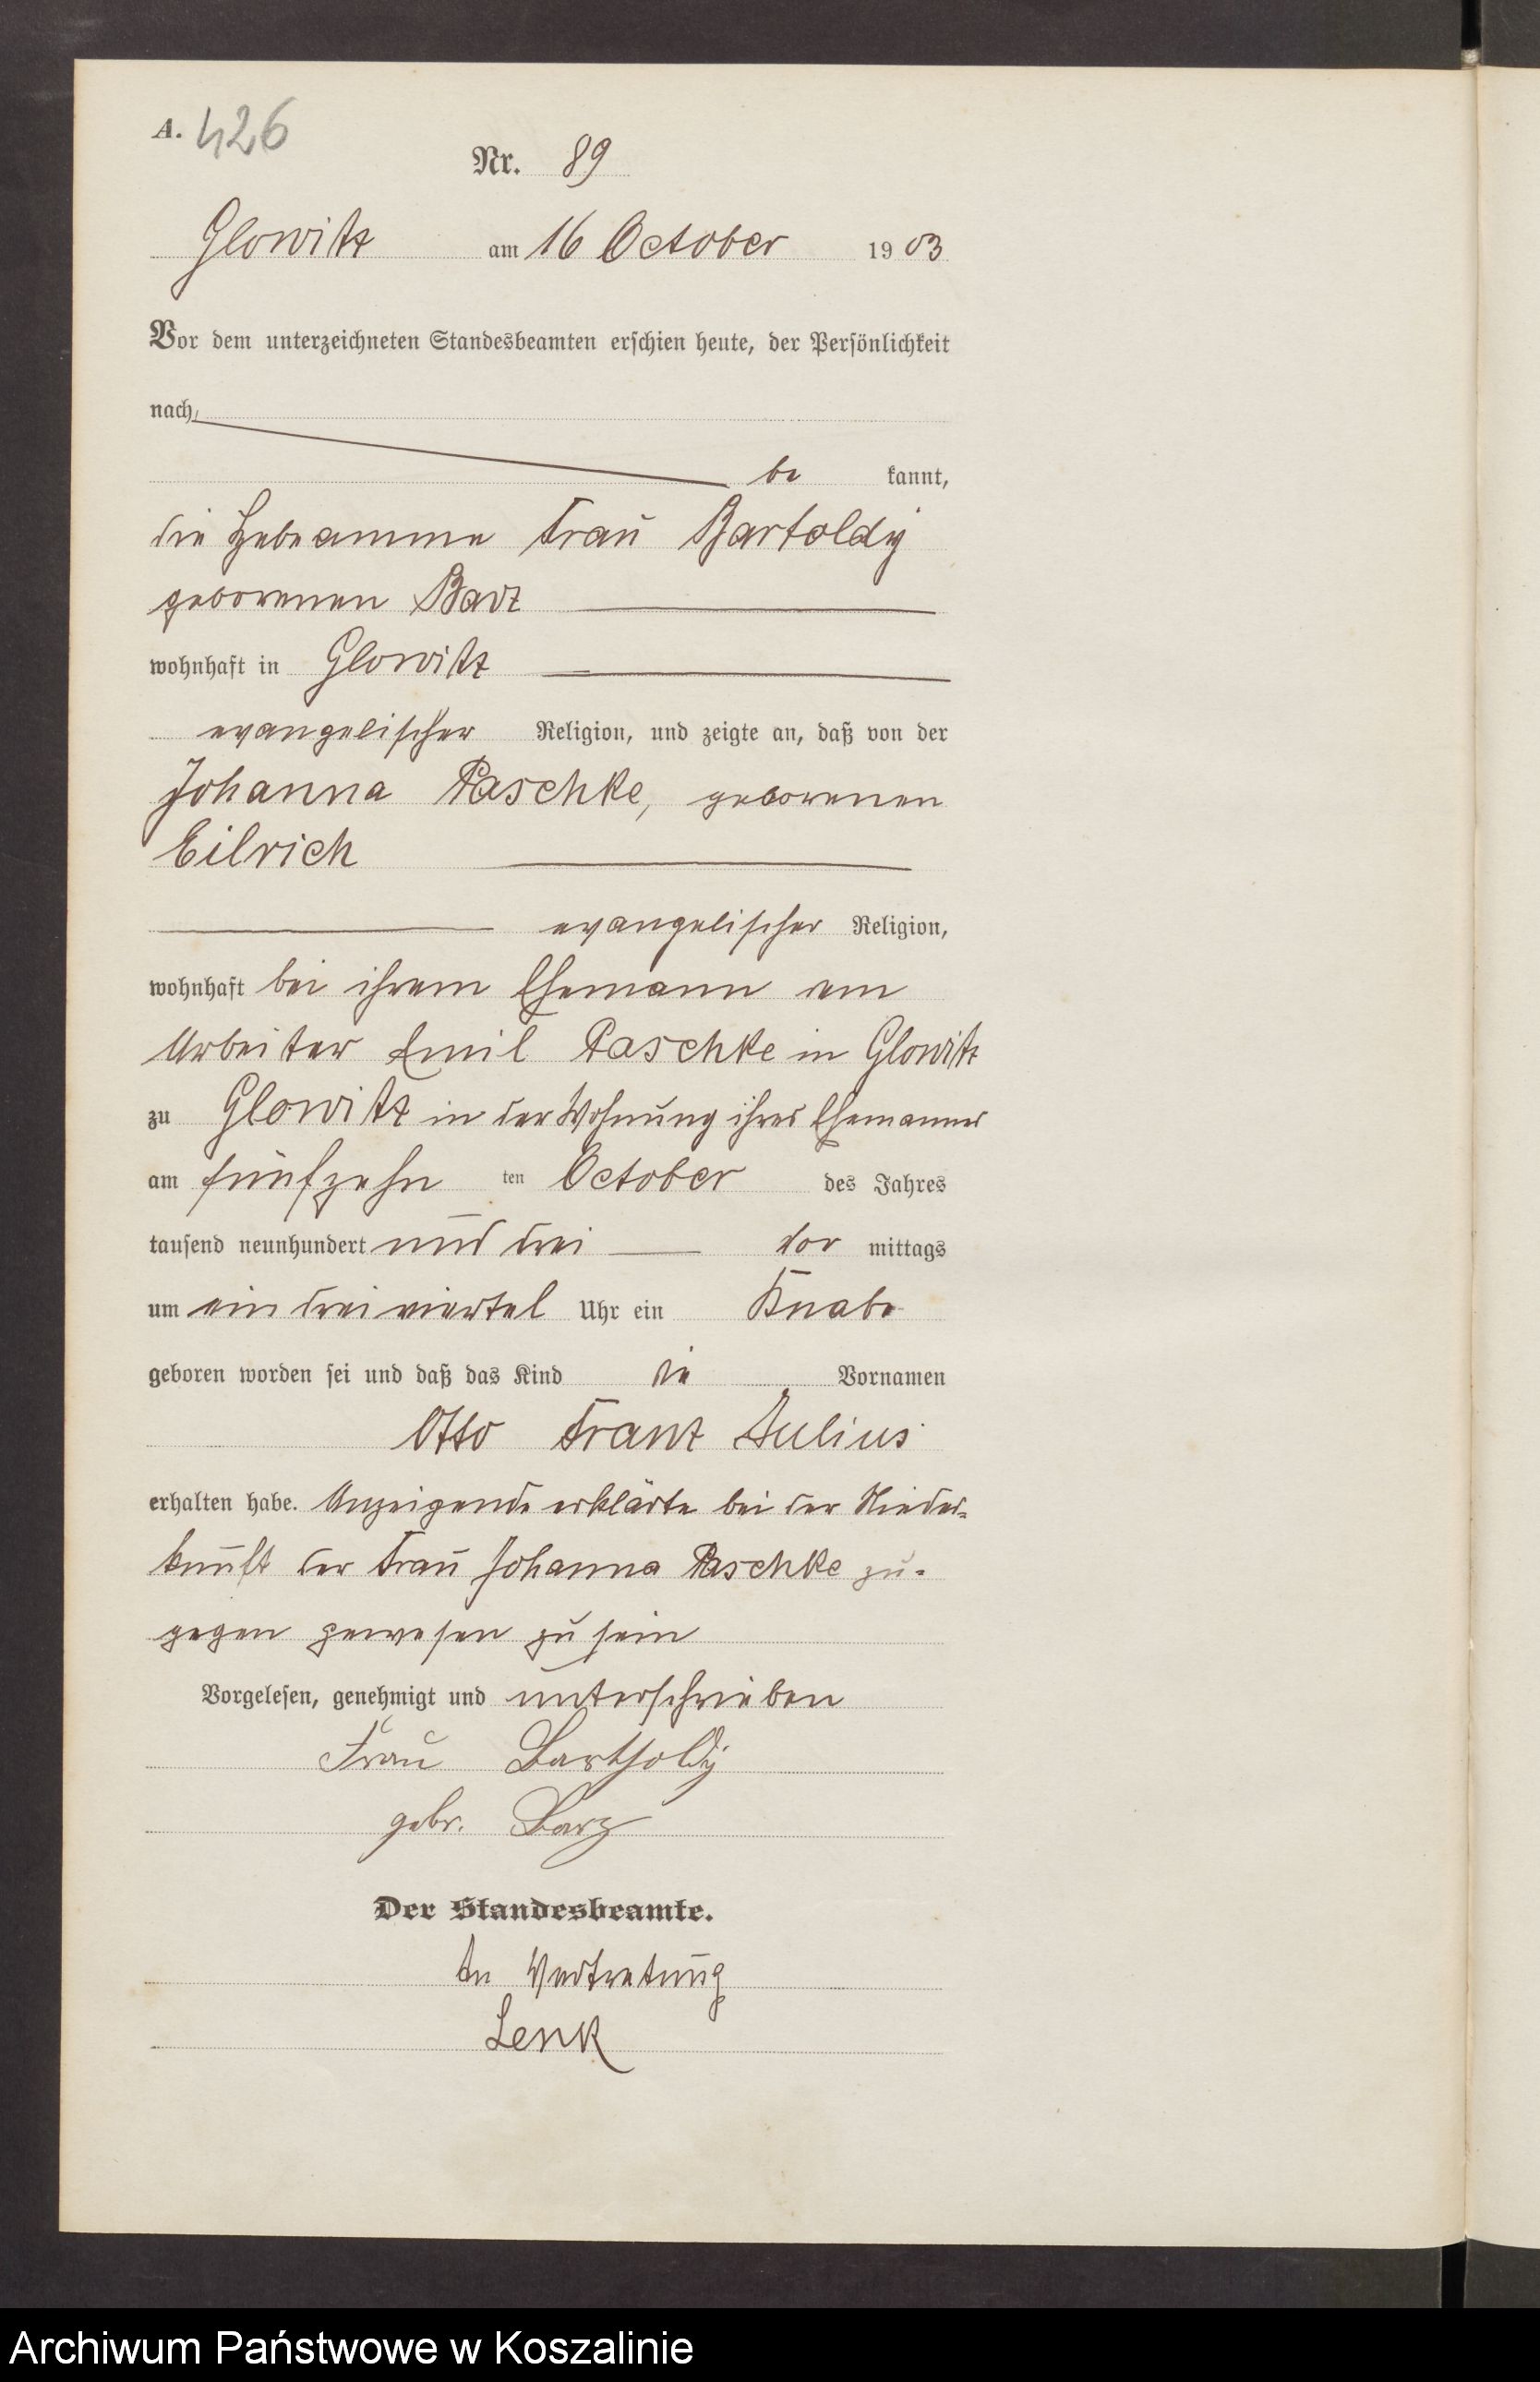 A. 426
Nr. 89
Glowitz am 16 October 1903
Vor dem unterzeichneten Standesbeamten erschien heute, der Persönlichkeit
nach,
be kannt,
die Hebeamme Frau Bartoldy
geborenen Barz
wohnhaft in Glowitz
evangelischer Religion, und zeigte an, daß von der
Johanna Paschke, geborenen
Eilrich
evangelischer Religion,
wohnhaft bei ihrem Ehemann dem
Arbeiter Emil Paschke in Glowitz
zu Glowitz in der Wohnung ihres Ehemannes
am fünfzehn ten October des Jahres
tausend neunhundert und drei vor mittags
um ein dreiviertel Uhr ein Knabe
geboren worden sei und daß das Kind die Vornamen
Otto Franz Julius
erhalten habe. Anzeigende erklärte bei der Nieder-
kunft der Frau Johanna Paschke zu-
gegen gewesen zu sein
Vorgelesen, genehmigt und unterschrieben
Frau Bartholdy
gebr. Barz
Der Standesbeamte.
In Vertretung
Lenk
Archiwum Państwowe w Koszalinie